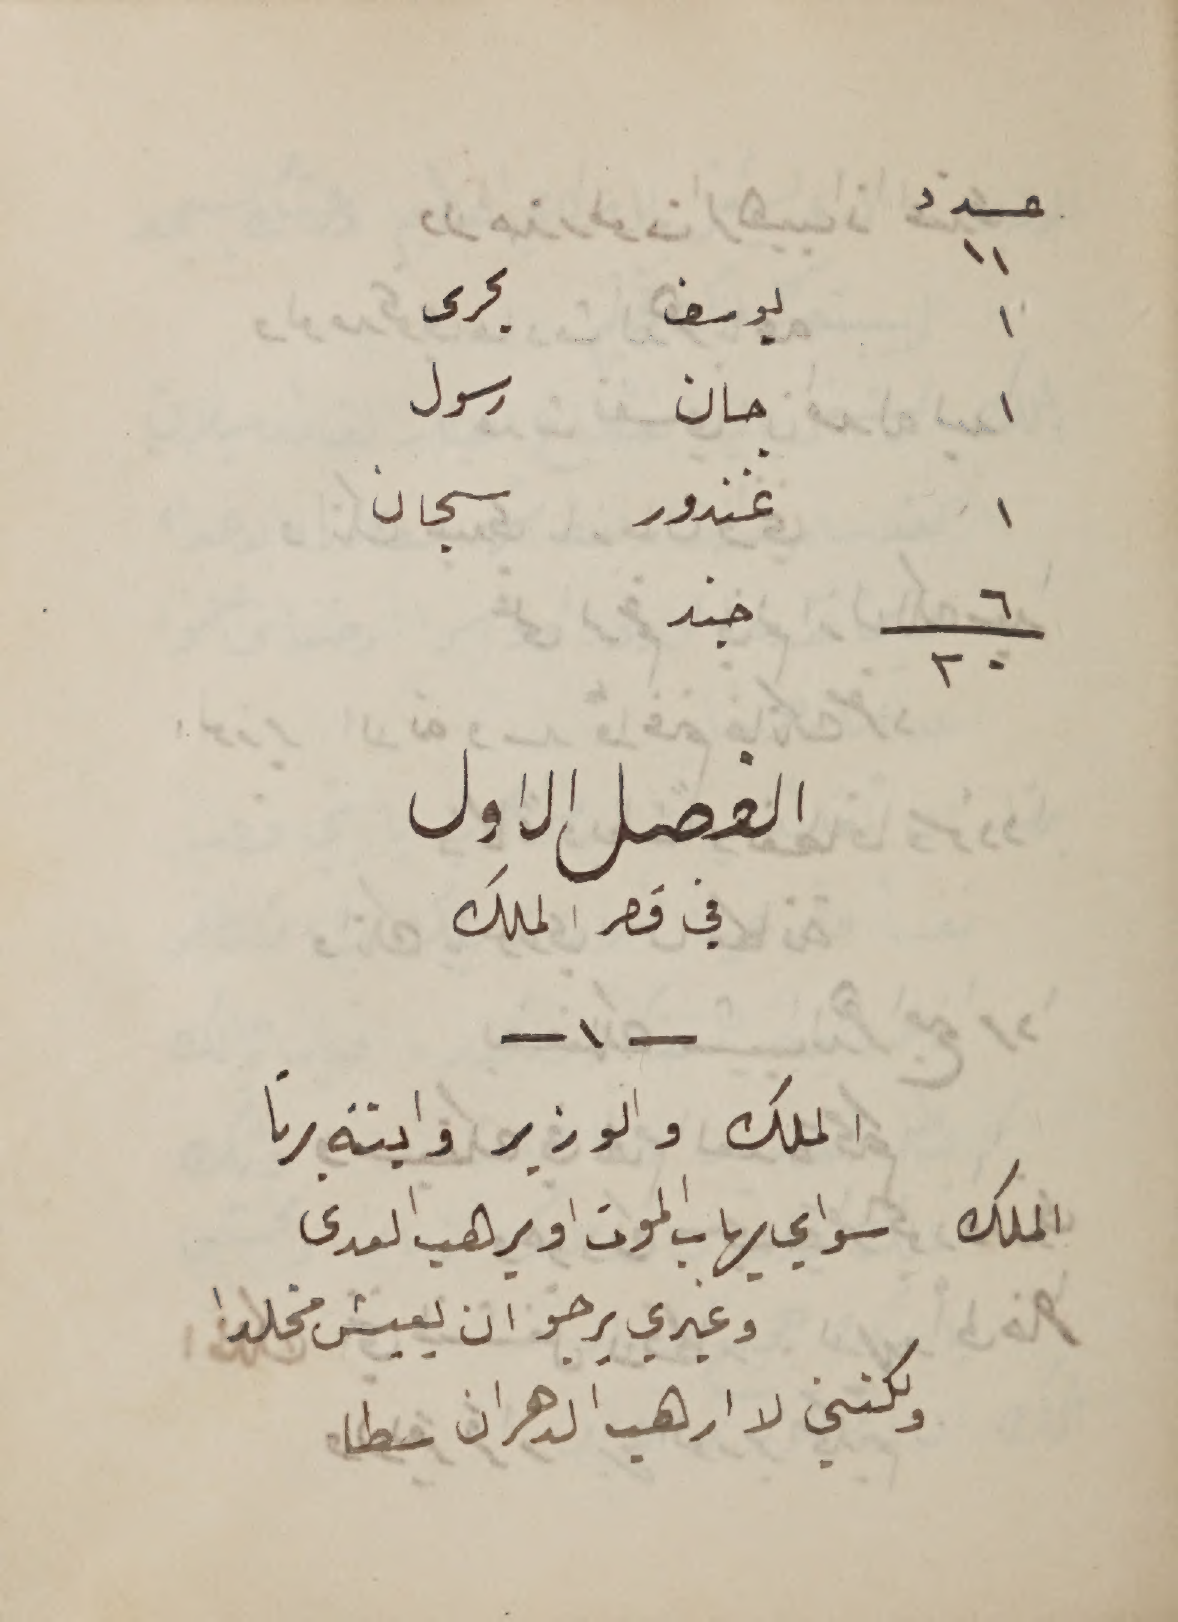 عدد
١١
١ يوسف بحرى
١ جان رسول
١ غندور سجان
٦ جند
٢٠
الفصل الاول
في قصر الملك
— ١ —
الملك والوزير وابنته برتا
الملك سواي يهاب الموت او يرهب العدى
وغيري يرجو ان يعيش مخلدا
ولكنني لا ارهب الدهر ان سطا